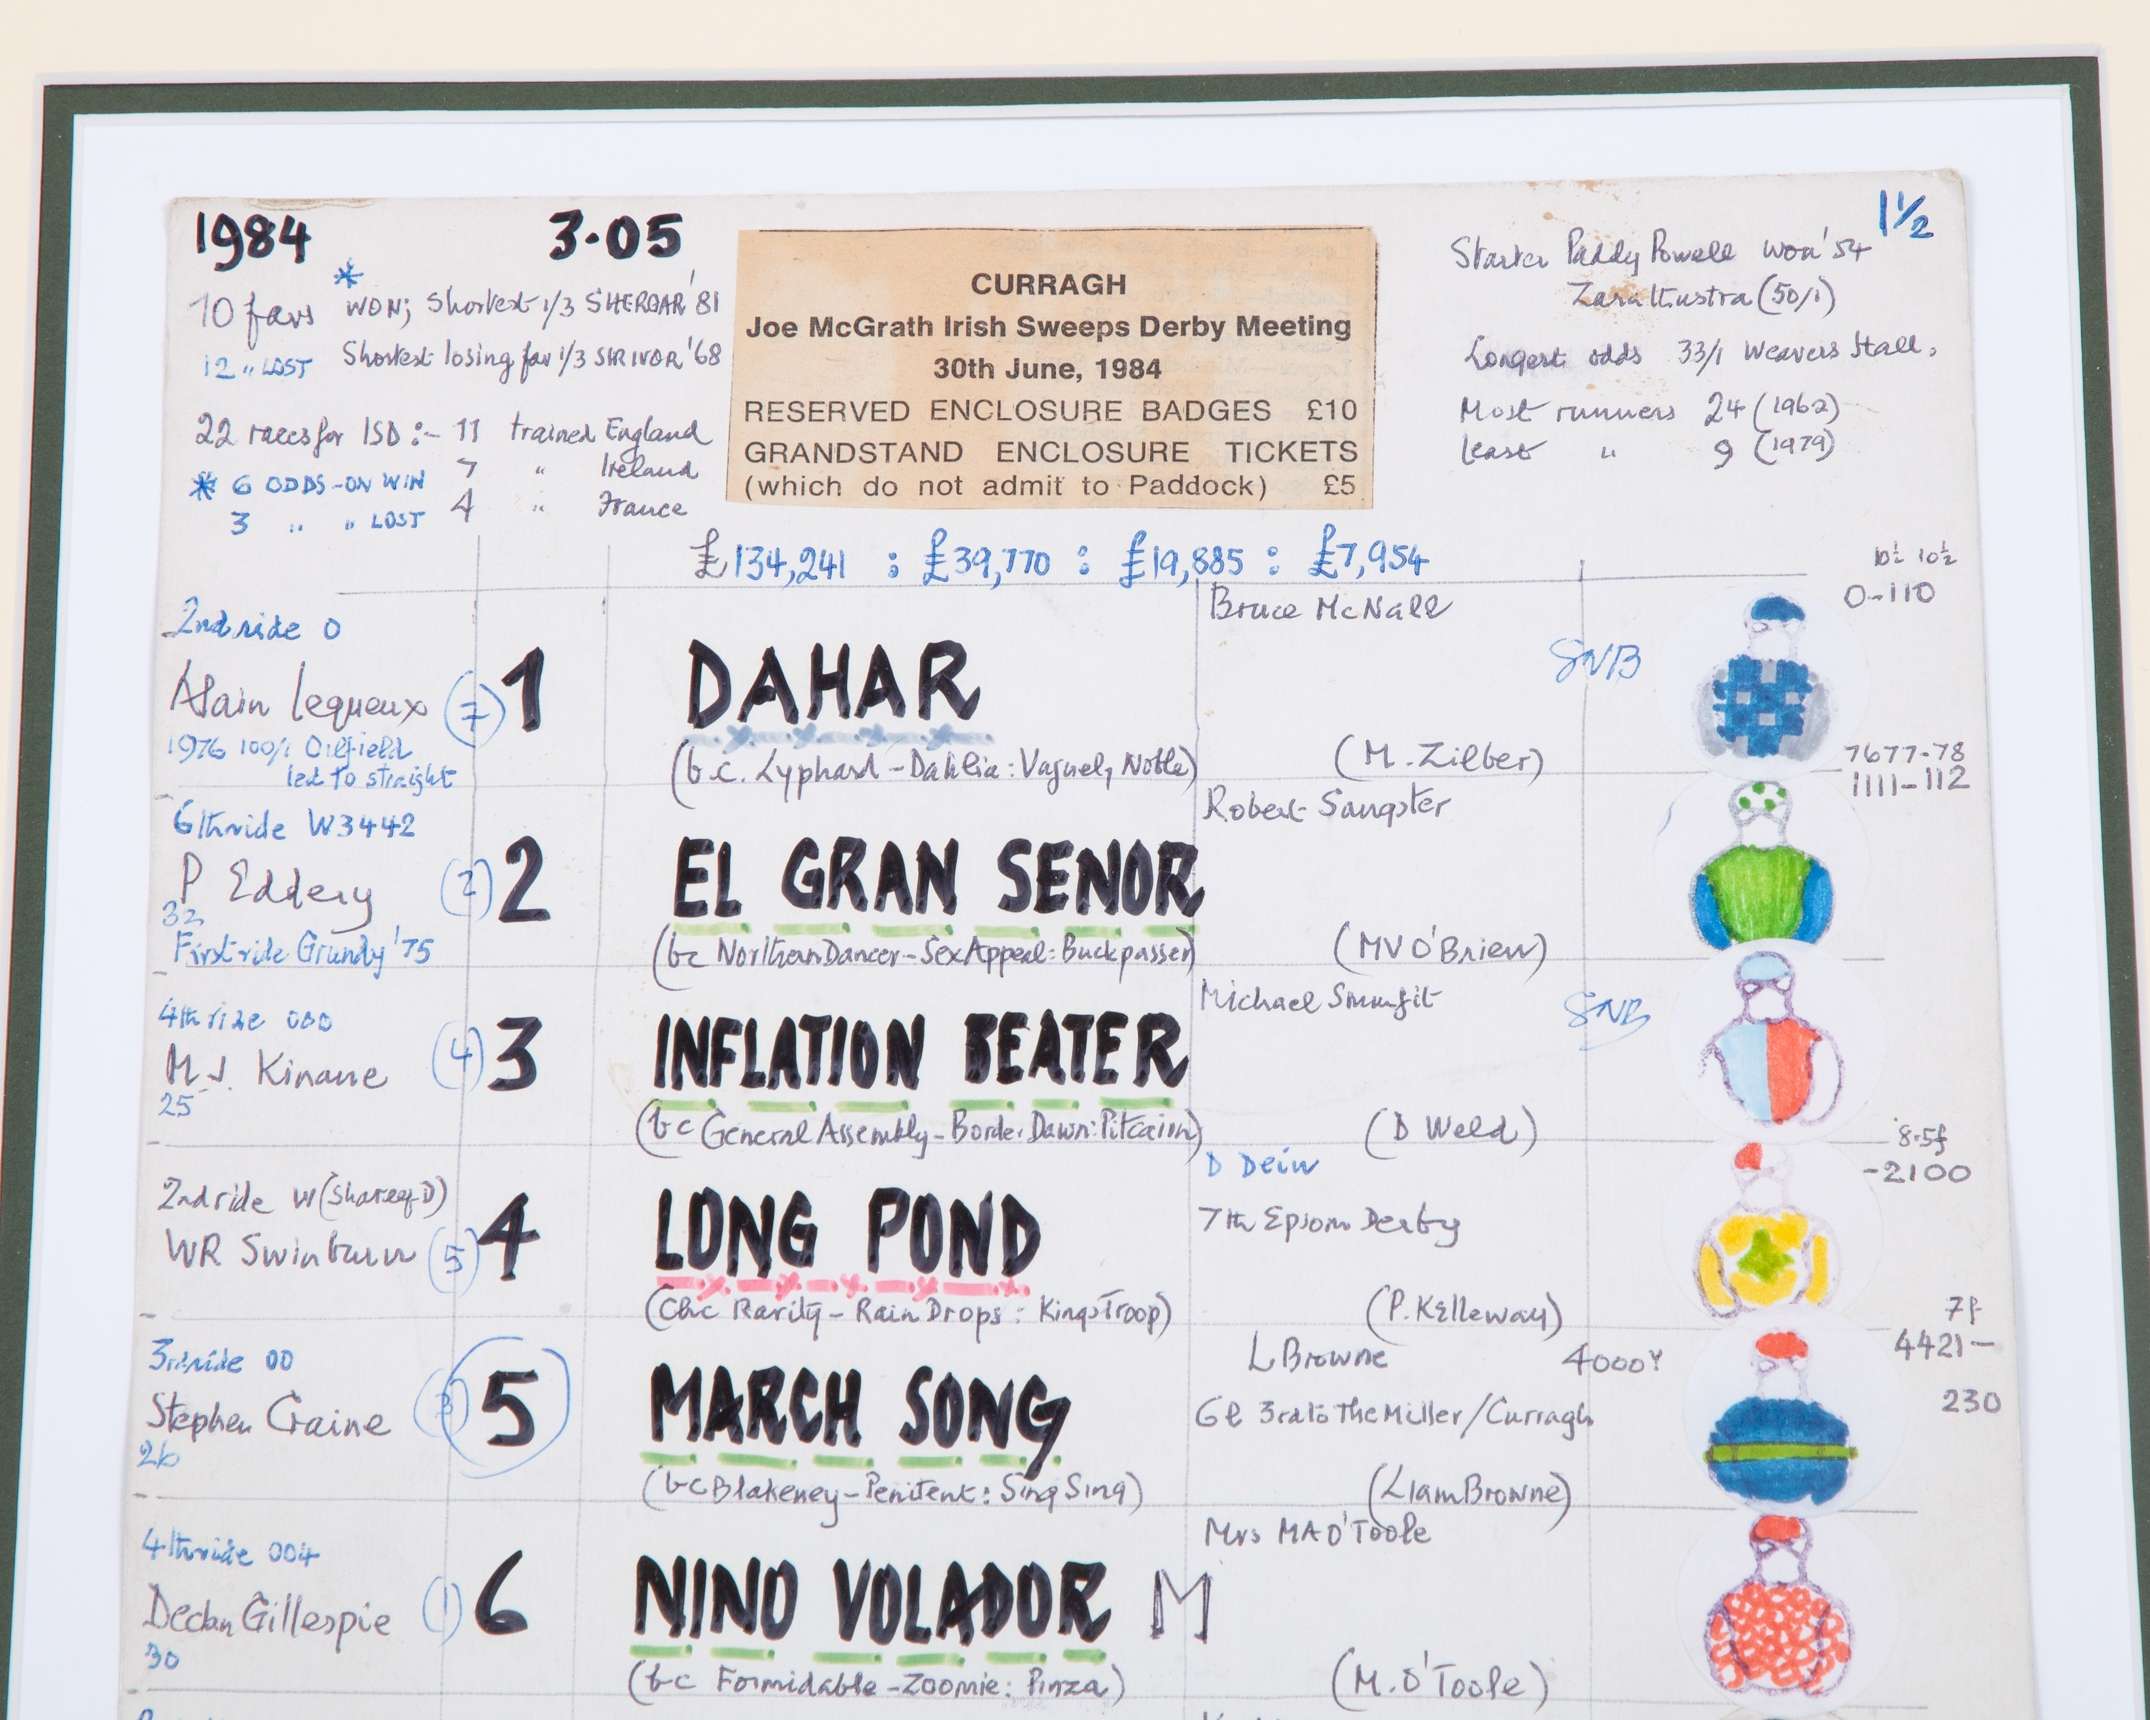 1984 3.05 1½
10 favs * WON; Shortest 1/3 SHERGAR '81
12 " LOST Shortest losing fav 1/3 SIR IVOR '68
22 races for ISD :- 11 trained England
7 " Ireland
4 " France
* 6 ODDS-ON WIN
3 " " LOST
CURRAGH
Joe McGrath Irish Sweeps Derby Meeting
30th June, 1984
RESERVED ENCLOSURE BADGES £10
GRANDSTAND ENCLOSURE TICKETS
(which do not admit to Paddock) £5
Starter Paddy Powell won '54
Zarathustra (50/1)
Longest odds 33/1 Weavers Hall.
Most runners 24 (1962)
Least " 9 (1979)
£134,241 : £39,770 : £19,885 : £7,954
10½ 10½
2nd ride 0 Bruce McNall 0-110
Alain Lequeux (7) 1 DAHAR SNB
1976 100/1 Oilfield
led to straight
(b.c. Lyphard - Dahlia: Vaguely Noble) (M. Zilber) 7677-78
6th ride W3442 Robert Sangster 1111-112
P Eddery (2) 2 EL GRAN SENOR
32
First ride Grundy '75 (bc Northern Dancer - Sex Appeal: Buckpasser) (MV O'Brien)
4th ride 000 Michael Smurfit
M J. Kinane (4) 3 INFLATION BEATER SNB
25
(bc General Assembly - Border Dawn: Pitcairn) (D Weld) 8.5f
D Dein -2100
2nd ride W (Shareef D) 7th Epsom Derby
WR Swinburn (5) 4 LONG POND
(Chc Rarity - Rain Drops: Kings Troop) (P. Kelleway) 7f
3rd ride 00 L Browne 4000Y 4421-
Stephen Craine (3) 5 MARCH SONG 6l 3rd to The Miller/Curragh 230
26
(bc Blakeney - Penitent: Sing Sing) (Liam Browne)
4th ride 004 Mrs MA O'Toole
Declan Gillespie (1) 6 NINO VOLADOR M
30
(bc Formidable - Zoomie: Pinza) (M. O'Toole)